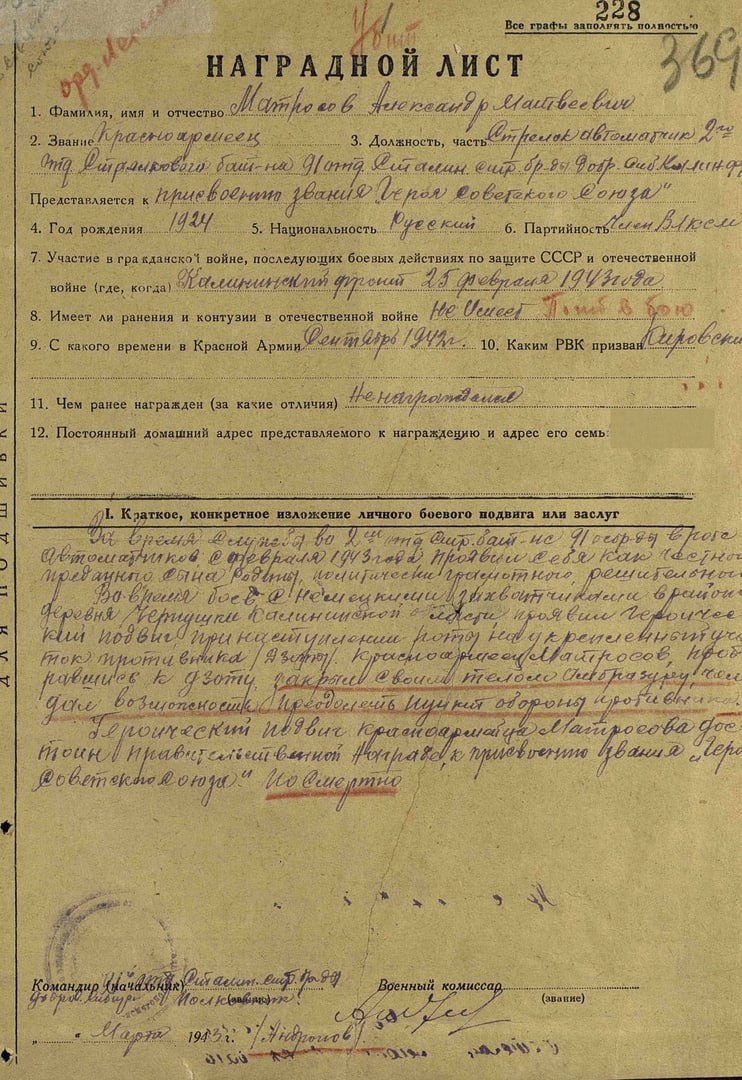 228
Все графы заполнять полностью
Убит
369
орд. Ленина
НАГРАДНОЙ ЛИСТ
1. Фамилия, имя и отчество Матросов Александр Матвеевич
2. Звание Красноармеец 3. Должность, часть Стрелок автоматчик 2го
отд Стрелкового бат-на 91 отд. Сталин. стр. бр-ды добр. сиб Калин. фр
Представляется к присвоению звания Героя Советского Союза"
4. Год рождения 1924 5. Национальность Русский 6. Партийность Член ВЛКСМ
7. Участие в гражданской войне, последующих боевых действиях по защите СССР и отечественной
войне (где, когда) Калининский фронт 25 февраля 1943 года
8. Имеет ли ранения и контузии в отечественной войне Не Имеет Погиб в бою
9. С какого времени в Красной Армии Сентябрь 1942 г. 10. Каким РВК призван Кировски
11. Чем ранее награжден (за какие отличия) Не награждался
12. Постоянный домашний адрес представляемого к награждению и адрес его семь
I. Краткое, конкретное изложение личного боевого подвига или заслуг
За время службы во 2ом отд стр. бат-не 91 осбр-ды в роте
автоматчиков с февраля 1943 года проявил себя как честного
преданного сына Родины, политически грамотного, решительного
Во время боев с немецкими захватчиками в район
деревня Чернушки Калининской области проявил героичес
кий подвиг при наступлении роты на укрепленный учас
ток противника /Дзоты/. Красноармеец Матросов, проб
равшись к дзоту, закрыл своим телом амбразуру, чем
дал возможность преодолеть пункт обороны противника.
Героический подвиг красноармейца Матросова дос
тоин правительственной награде, к присвоению звания „Геро
Советского Союза." Посмертно
Командир (начальник) отд Сталин. стр. бр-ды Военный комиссар
добров. Сибир. Полковник (звание) (звание)
„ " Марта 1943 г. /Андронов/
ДЛЯ ПОДШИВКИ